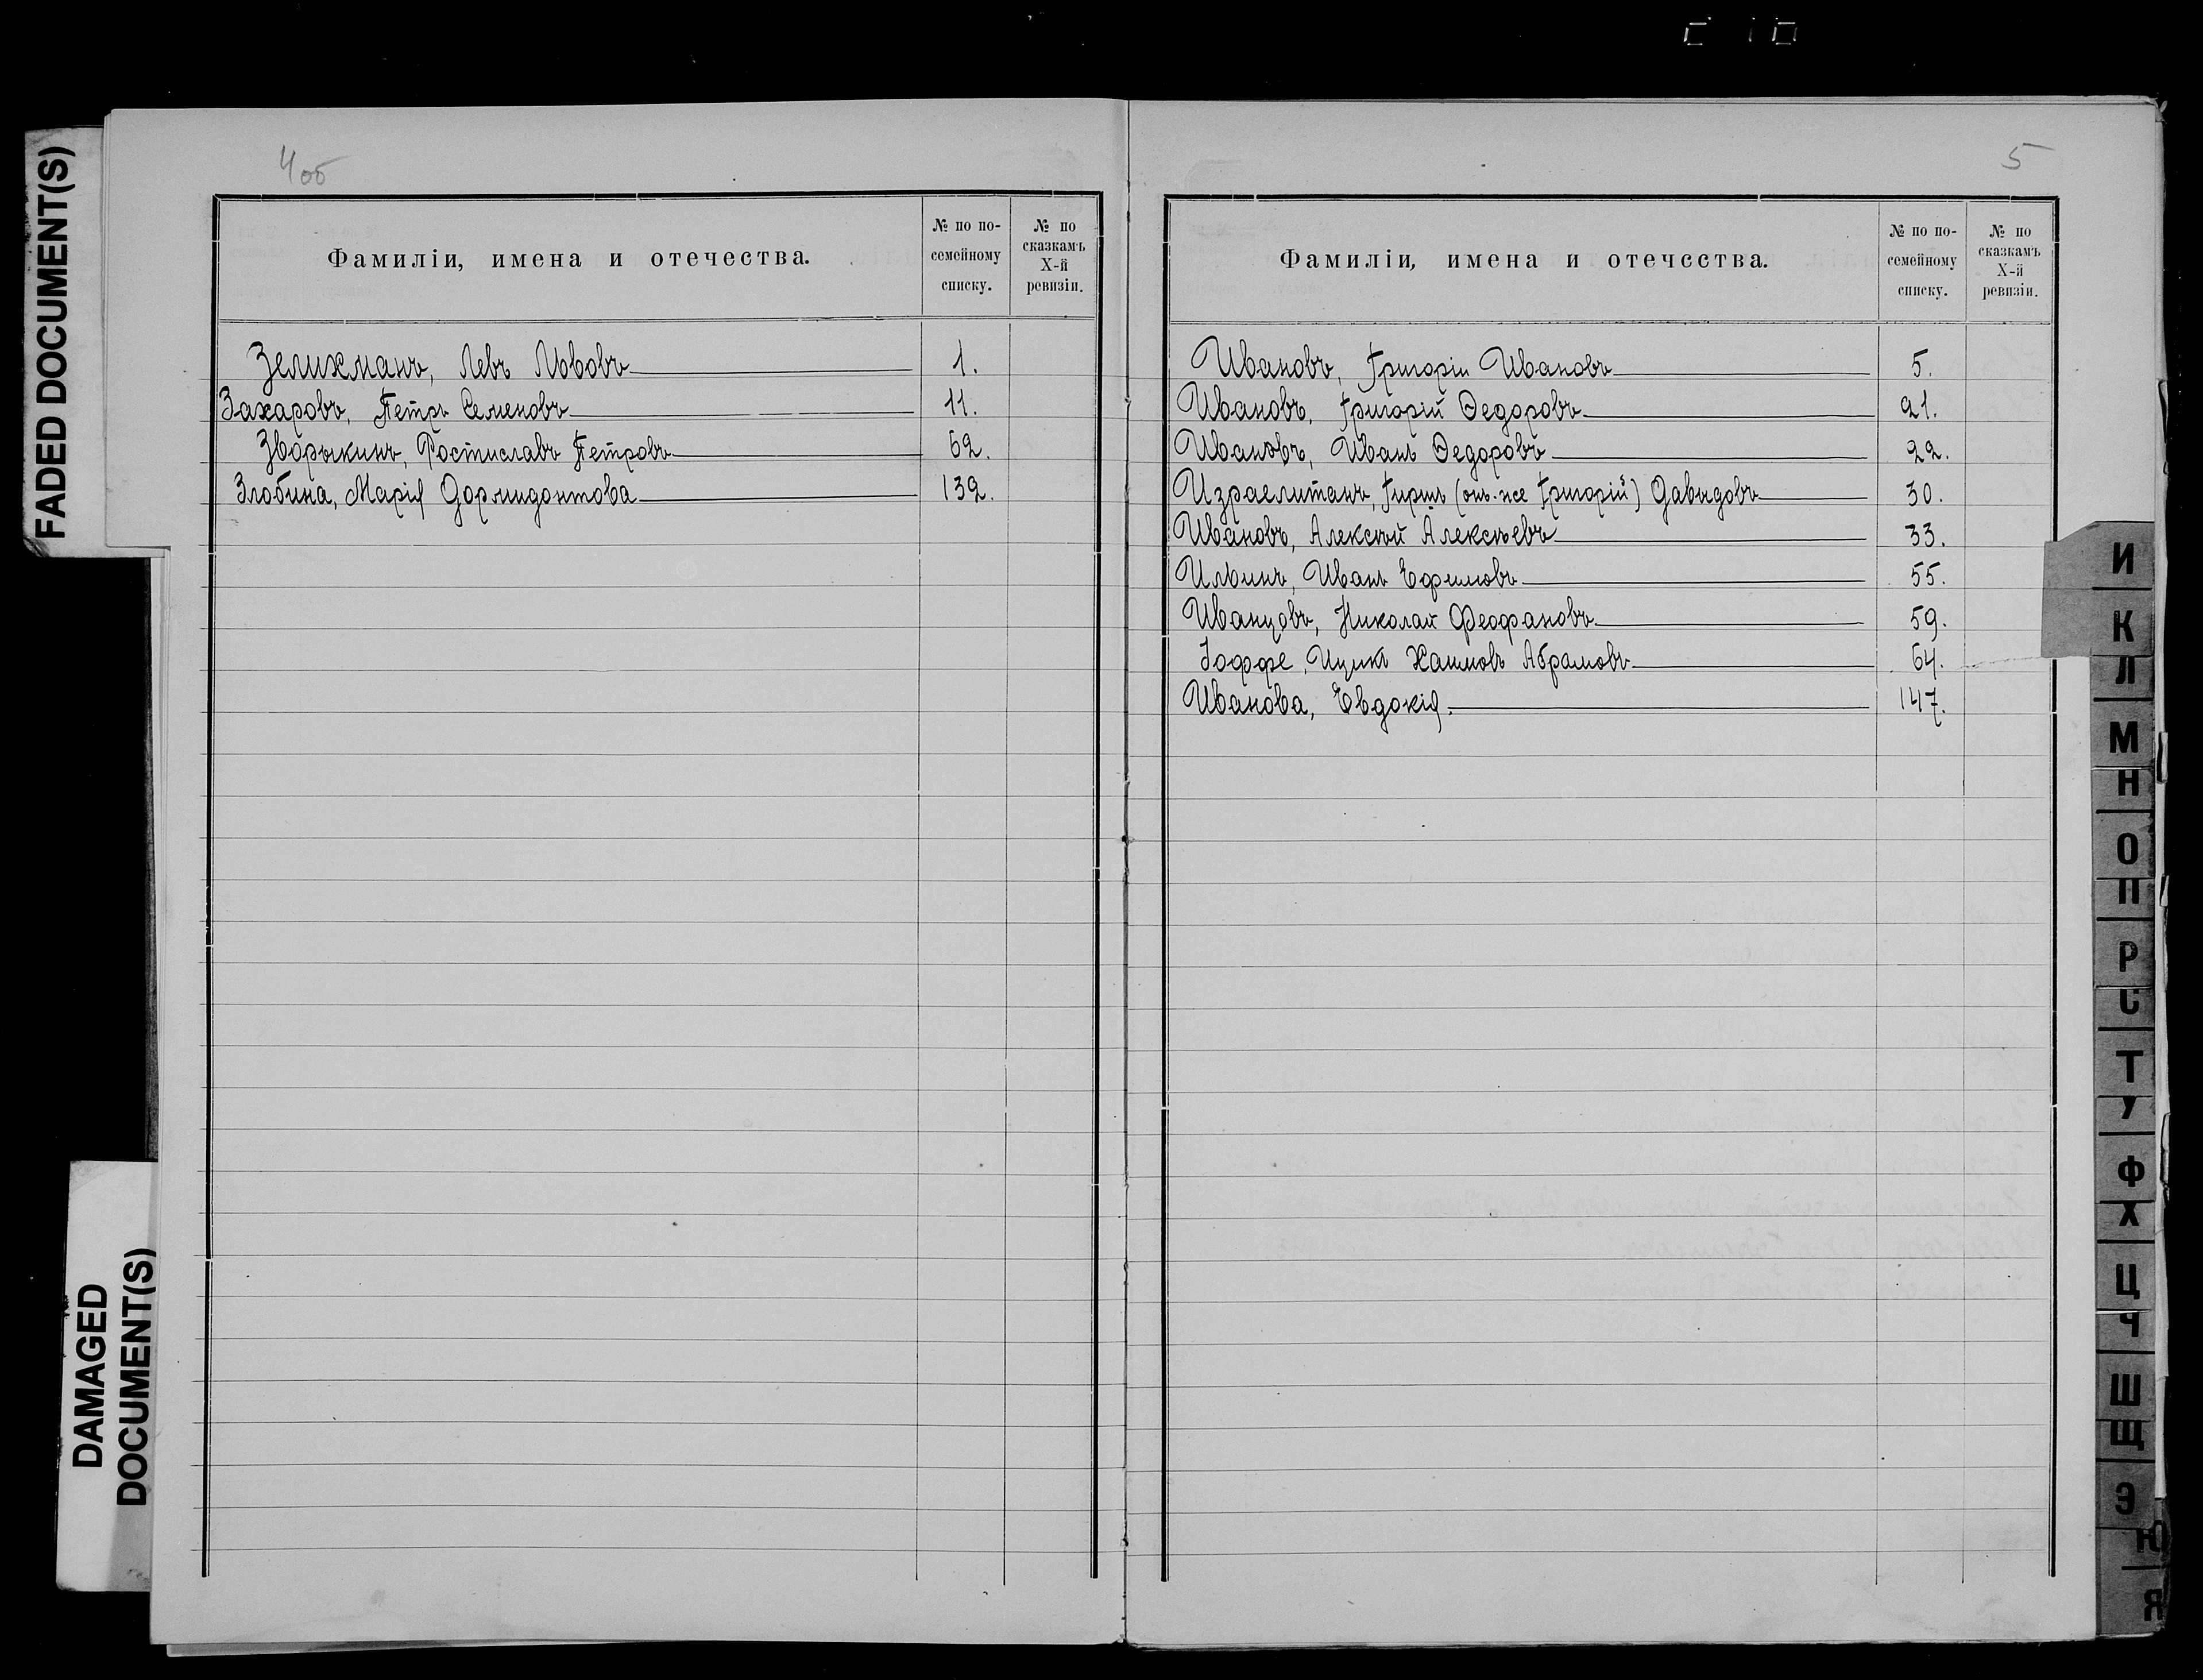 FADED DOCUMENT(S)
DAMAGED
DOCUMENT(S)
4 об
Фамиліи, имена и отечества.
№ по по-
семейному
списку.
№ по
сказкамъ
X-й
ревизіи.
Зелихманъ, Левъ Львовъ 1.
Захаровъ, Петръ Семеновъ 11.
Зворыкинъ, Ростиславъ Петровъ 62.
Злобина, Марія Дормидонтова 139.
5
Фамиліи, имена и отечества.
№ по по-
семейному
списку.
№ по
сказкамъ
X-й
ревизіи.
Ивановъ, Григорій Ивановъ 5.
Ивановъ, Григорій Ѳедоровъ 21.
Ивановъ, Иванъ Ѳедоровъ 22.
Израелитанъ, Гиршъ (онъ-же Григорій) Давыдовъ 30.
Ивановъ, Алексѣй Алексѣевъ 33.
Ильинъ, Иванъ Ефимовъ 55.
Иванцовъ, Николай Феофановъ 59.
Іоффе, Ицикъ Хаимовъ Абрамовъ 64.
Иванова, Евдокія. 147.
И
К
Л
М
Н
О
П
Р
С
Т
У
Ф
Х
Ц
Ч
Ш
Щ
Э
Ю
Я